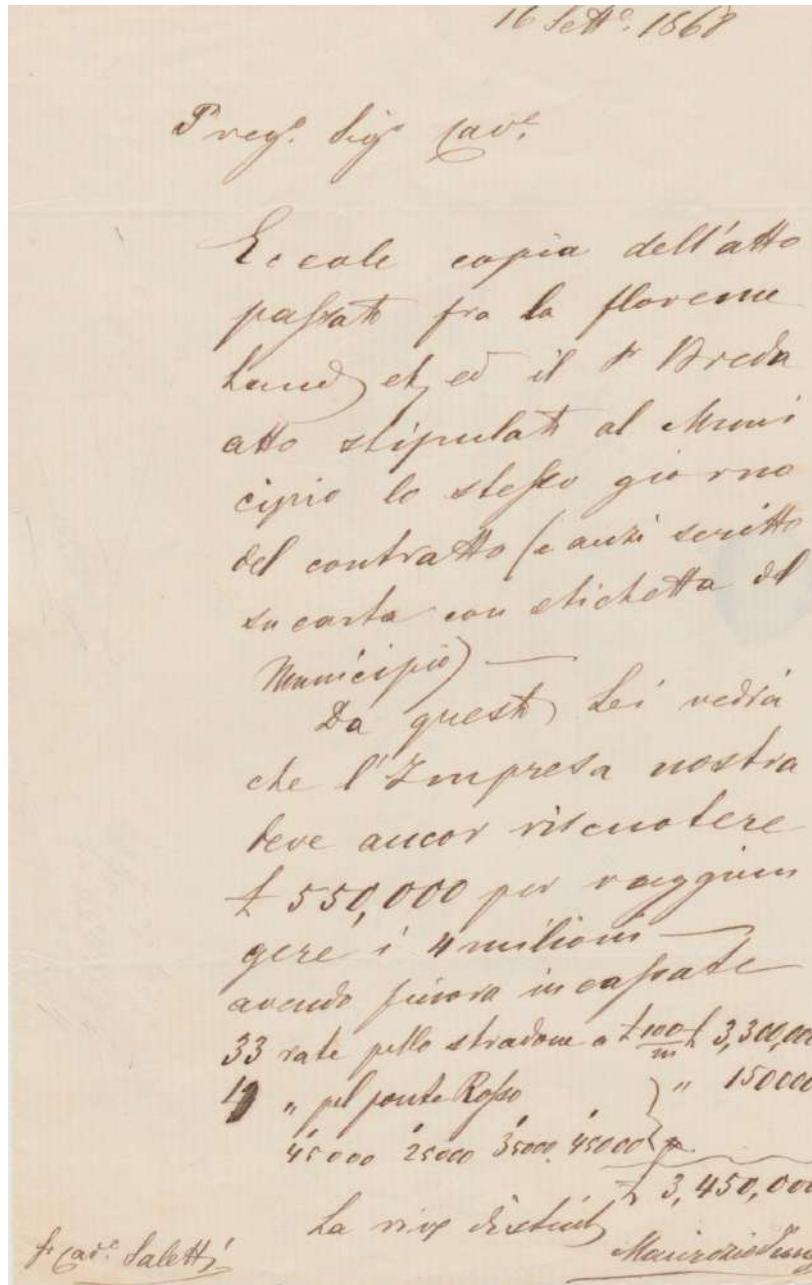 16 Sett.e 1868
Preg.o Sig.e Cav.e
Eccole copia dell'atto
passato fra la florence
Land et ed il Sr Breda
atto stipulato al Muni
cipio lo stesso giorno
del contratto (e anzi scritto
su carta con etichetta del
Municipio) —
Da questo Lei vedrà
che l'Impresa nostra
deve ancor riscuotere
£ 550,000 per raggiun
gere i 4 milioni —
avendo finora incassate
33 rate pello stradone a £ 100/m £ 3,300,00
" pel ponte Rosso } " 150000
45000 25000 35000 45000
£ 3,450,000
La riv distint
Sr Cav.e Saletti
Maurizio